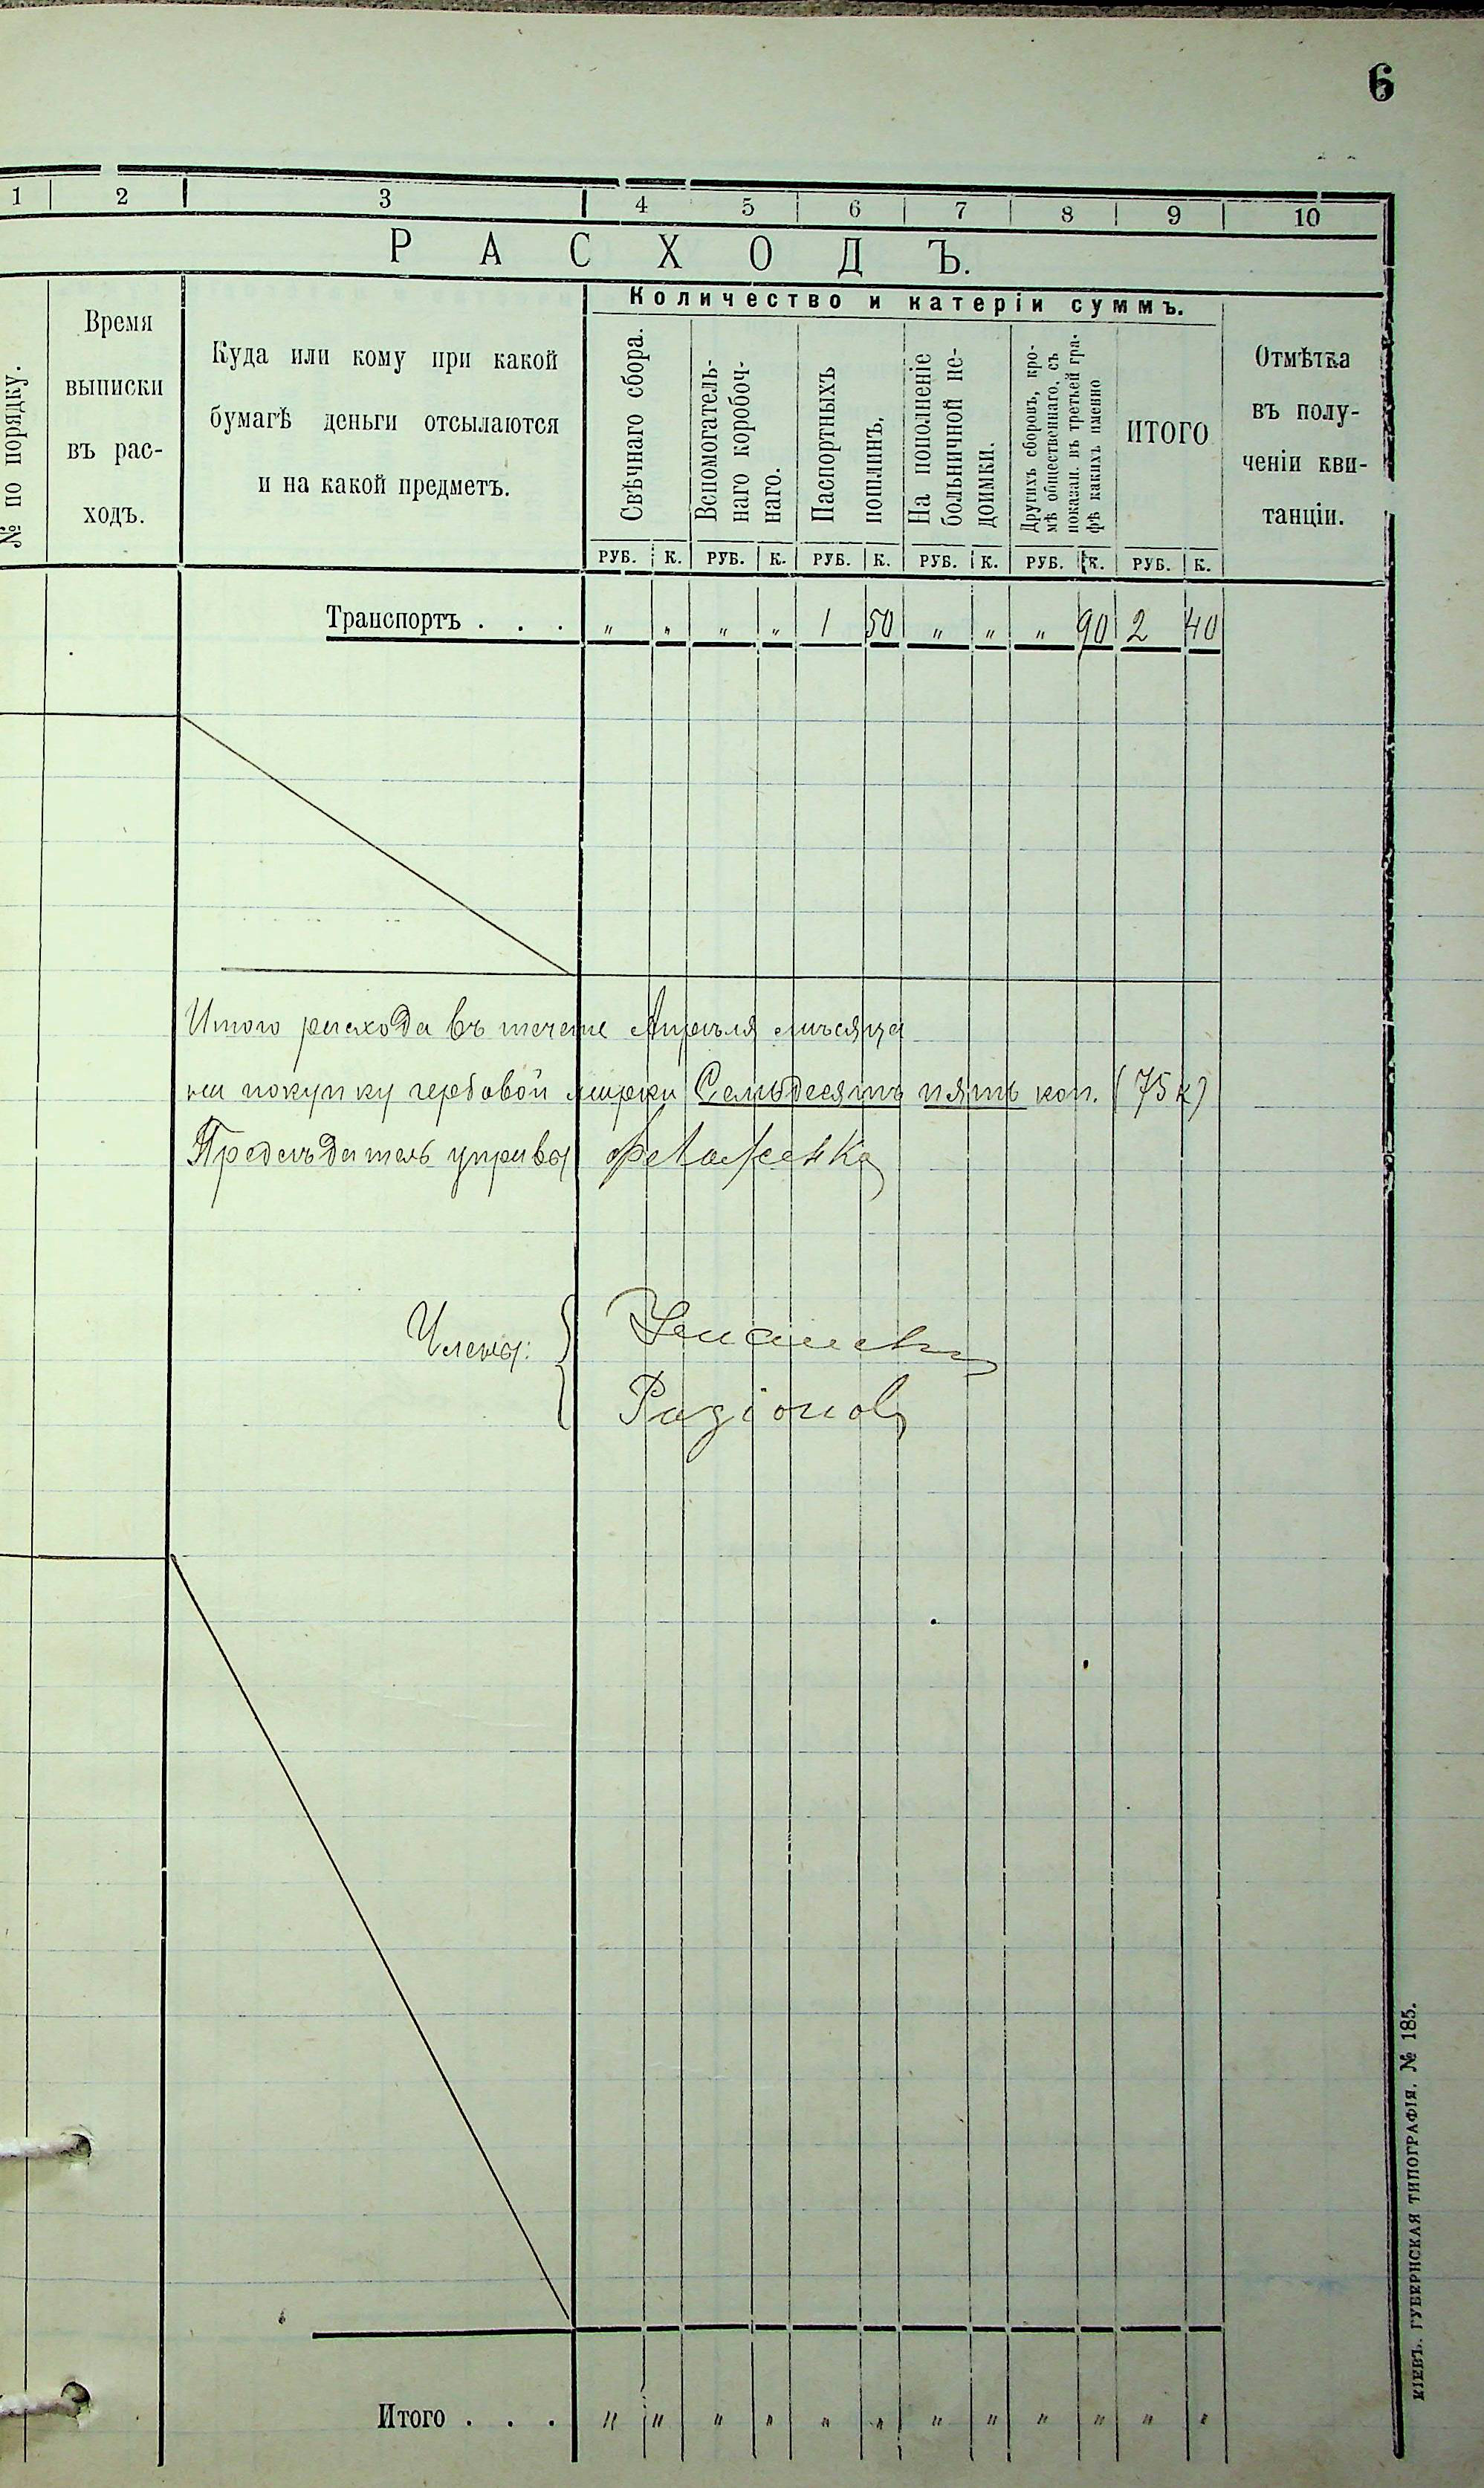 6
1 2 3 4 5 6 7 8 9 10
РАСХОДЪ.
№ по порядку.
Время
выписки
въ рас-
ходъ.
Куда или кому при какой
бумагѣ деньги отсылаются
и на какой предметъ.
Количество и катеріи суммъ.
Свѣчнаго сбора.
Вспомогатель-
наго коробоч-
наго.
Паспортныхъ
пошлинъ.
На пополненіе
больничной не-
доимки.
Другихъ сборовъ, кро-
мѣ общественнаго, съ
показан. въ третьей гра-
фѣ какихъ именно
ИТОГО
Отмѣтка
въ полу-
ченіи кви-
танціи.
РУБ. К. РУБ. К. РУБ. К. РУБ. К. РУБ. К. РУБ. К.
Транспортъ . . . " " " " 1 50 " " " 90 2 40
Итого расхода въ течение Апрѣля мѣсяца
на покупку гербовой марки Семьдесятъ пять коп. (75 к)
Предсѣдатель управы
Члены:
Разіоновъ
Итого . . . " " " " " " " " " " " "
КІЕВЪ. ГУБЕРНСКАЯ ТИПОГРАФІЯ. № 185.